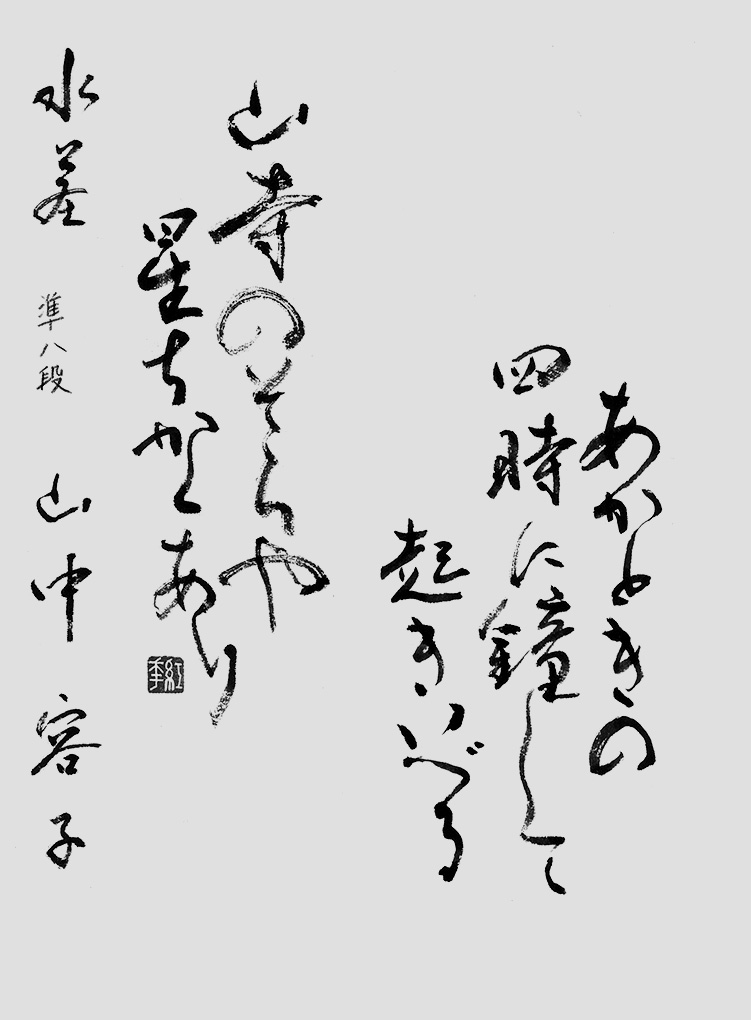 あかときの
四時に鐘して
起きいづる
山寺のそらや
星ちかくあり
紅季
水茎 準八段 山中容子